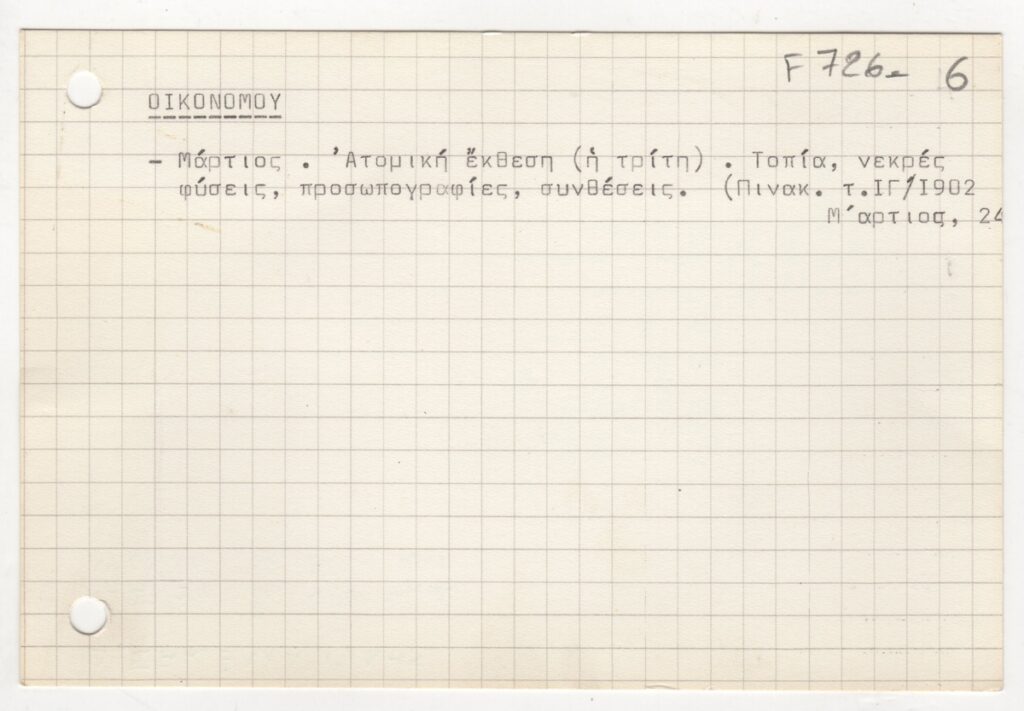 F 726- 6
ΟΙΚΟΝΟΜΟΥ
- Μάρτιος . Ἀτομική ἔκθεση (ἡ τρίτη) . Τοπία, νεκρές
φύσεις, προσωπογραφίες, συνθέσεις. (Πινακ. τ.ΙΓ/Ι902
Μ΄αρτιος, 24